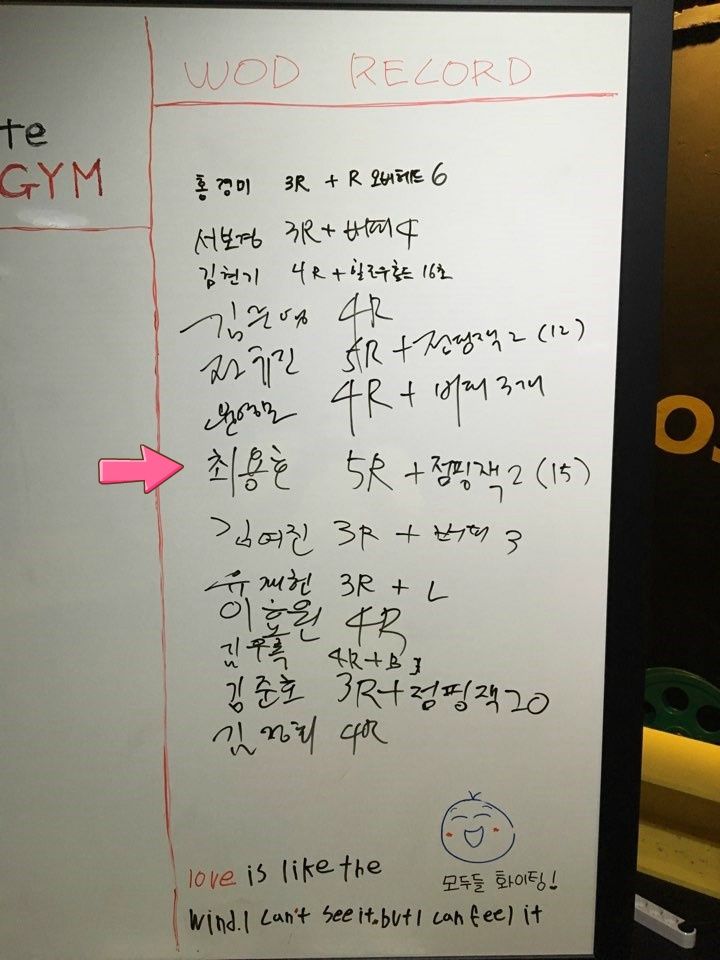 te
GYM
WOD RECORD
홍경미 3R + R 오버헤드 6
서보경 3R + 버피 4
김현기 4R + 할로우홀드 16초
4R
5R + 점핑잭 2 (12)
4R + 버피 3개
최용호 5R + 점핑잭 2 (15)
김여진 3R + 버피 3
유재현 3R + L
이호원 4R
김우룩 4R + B 3
김준호 3R + 점핑잭 20
4R
모두들 화이팅!
love is like the
wind. I can't see it. but I can feel it